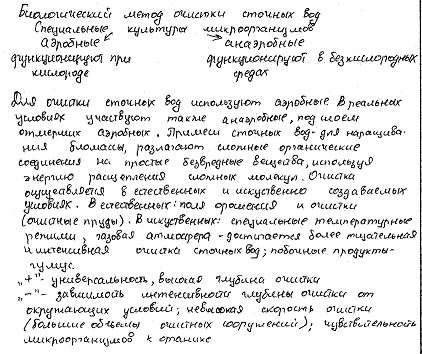 Биологический метод очистки сточных вод
Специальные культуры микроорганизмов
Аэробные анаэробные
функционируют при функционируют в бескислородных
кислороде средах
Для очистки сточных вод используют аэробные. В реальных
условиях участвуют также анаэробные, под слоем
отмерших аэробных. Примеси сточных вод - для наращива-
ния биомассы, разлагают сложные органические
соединения на простые безвредные вещества, используя
энергию расщепления сложных молекул. Очистка
осуществляется в естественных и искуственно создаваемых
условиях. В естественных: поля орошения и очистки
(очистные пруды). В искуственных: специальные температурные
режимы, газовая атмосфера - достигается более тщательная
и интенсивная очистка сточных вод; побочные продукты-
гумус.
"+" - универсальность, высокая глубина очистки
"-" - зависимость интенсивности глубины очистки от
окружающих условий; невысокая скорость очистки
(большие объемы очистных сооружений); чувствительность
микроорганизмов к органике